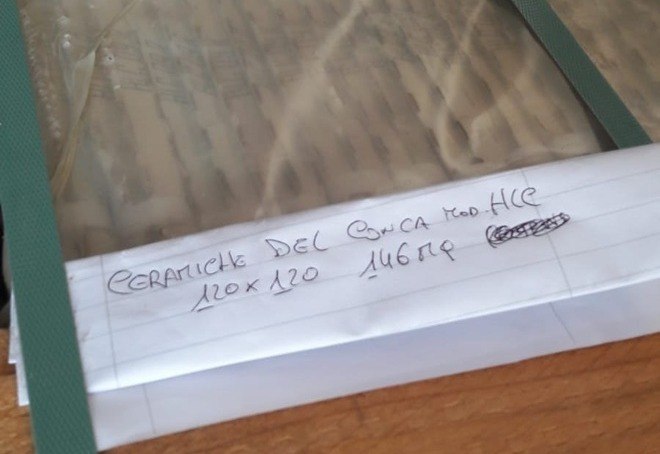 CERAMICHE DEL CONCA MOD. HCC
120 x 120 146 MQ